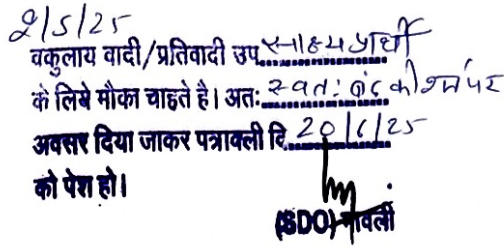 2/5/25
वकुलाय वादी/प्रतिवादी उप. साक्ष्य प्रार्थी
के लिये मौका चाहते है। अतः स्वतः बंद की शर्त पर
अवसर दिया जाकर पत्रावली दि. 20/6/25
को पेश हो।
(SDO) मावली